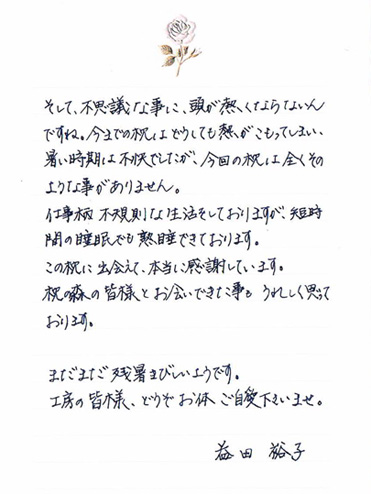 そして、不思議な事に、頭が熱くならないん
ですね。今までの枕はどうしても熱がこもってしまい、
暑い時期は不快でしたが、今回の枕は全くその
ような事がありません。
仕事柄 不規則な生活をしておりますが、短時
間の睡眠でも熟睡できております。
この枕に出会えて、本当に感謝しています。
枕の森の皆様とお会いできた事も うれしく思って
おります。
まだまだ 残暑きびしいようです。
工房の皆様、どうぞ お体 ご自愛下さいませ。
益田 裕子